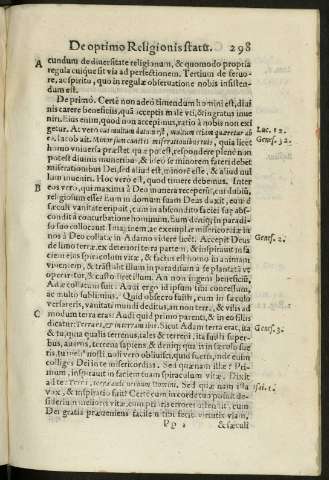 De optimo Religionis statu. 298
A cundum de diversitate religionum, & quomodo propria
regula cuique sit via ad perfectionem. Tertium de fervo-
re, ac spiritu, quo in regulæ observatione nobis insisten-
dum est.
De primo. Certè non adeò timendum homini est, divi
nis carere beneficiis, quà acceptis malè vti, & ingratus inve
niri. Eius enim, quod non accepimus, ratio à nobis non exi
getur. At verò cui multum datum est, multum etiam quæretur ab
eo. Iacob ait. Minor sum cunctis miserationibus tuis, quia licèt Luc. 12.
homo vniversa præstet, quæ potest, respondere plenè non Genes. 32.
potest divinis muneribus, & ideò se minorem fatetur debet
miserationibus Dei, sed aliud est, minorè esse, & aliud nul
lum inveniri. Hoc verò est, quod timere debemus. Inter
B eos verò, qui maxima à Deo munera receperût, cur dubiû,
religiosum esse? Eum in domum suam Deus duxit, eum à
sæculi vanitate eripuit, eum in abscondito faciei suæ abs-
condit à conturbatione hominum, Eum deniq; in paradi-
so suo collocavit. Imaginem, ac exemplar misericordiæ in
nos à Deo collatæ in Adamo videre licèt. Accepit Deus Genes. 2.
de limo terræ, ex deteriore terræ parte, & inspiravit in fa
ciem ejus spiraculum vitæ, & factus est homo in animam
viventem, & trāstulit illum in paradisum à se plantatū vt
operaretur, & custodiret illum. An non ingens beneficiū,
Adæ collatum fuit? Audi ergo id ipsum tibi concessum,
ac multo sublimius. Quid obsecro fuisti, cum in sæculo
versareris, vanitati mundi deditus, an non terra, & vilis ad
C modum terra eras? Audi quid primo parenti, & in eo illis
dicatur: Terra es, & in terram ibis. Sicut Adam terra erat, ita Genes. 3.
& tu, qui qualis terrenus, tales & terreni, ita fuisti super-
bus, avarus, terrena sapiens, & deniq; qui in sæculo fue
ris, tu melius nosti noli verò oblivisci, quid fueris, inde enim
colliges Dei in te misericordias. Sed quænam illæ? Pri-
mum, inspiravit in faciem tuam spiraculum vitæ. Dixit
ad te: Terra, terra audi verbum Domini. Sed quænam illa
vox, & inspiratio fuit? Certè cum in corde tuo posuit de-
siderium melioris vitæ, cum pristinos errores ostendit, cum
Dei gratia præveniens facile tibi fecit virtutis viam,
Pp 2 & sæculi